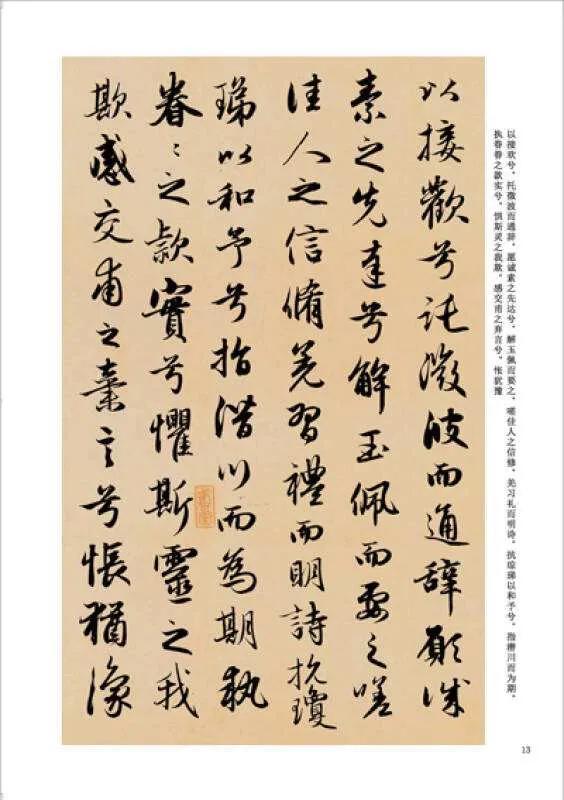 以接欢兮，托微波而通辞，愿诚素之先达兮，解玉佩而要之，嗟佳人之信修，羌习礼而明诗，抗琼珶以和予兮，指潜川而为期，
执眷眷之款实兮，惧斯灵之我欺，感交甫之弃言兮，怅犹豫
以接歡兮託微波而通辭願誠
素之先達兮解玉佩而要之嗟
佳人之信脩羌習禮而明詩抗瓊
珶以和予兮指潛川而為期執
眷〻之款實兮懼斯靈之我
欺感交甫之棄言兮悵猶豫
13